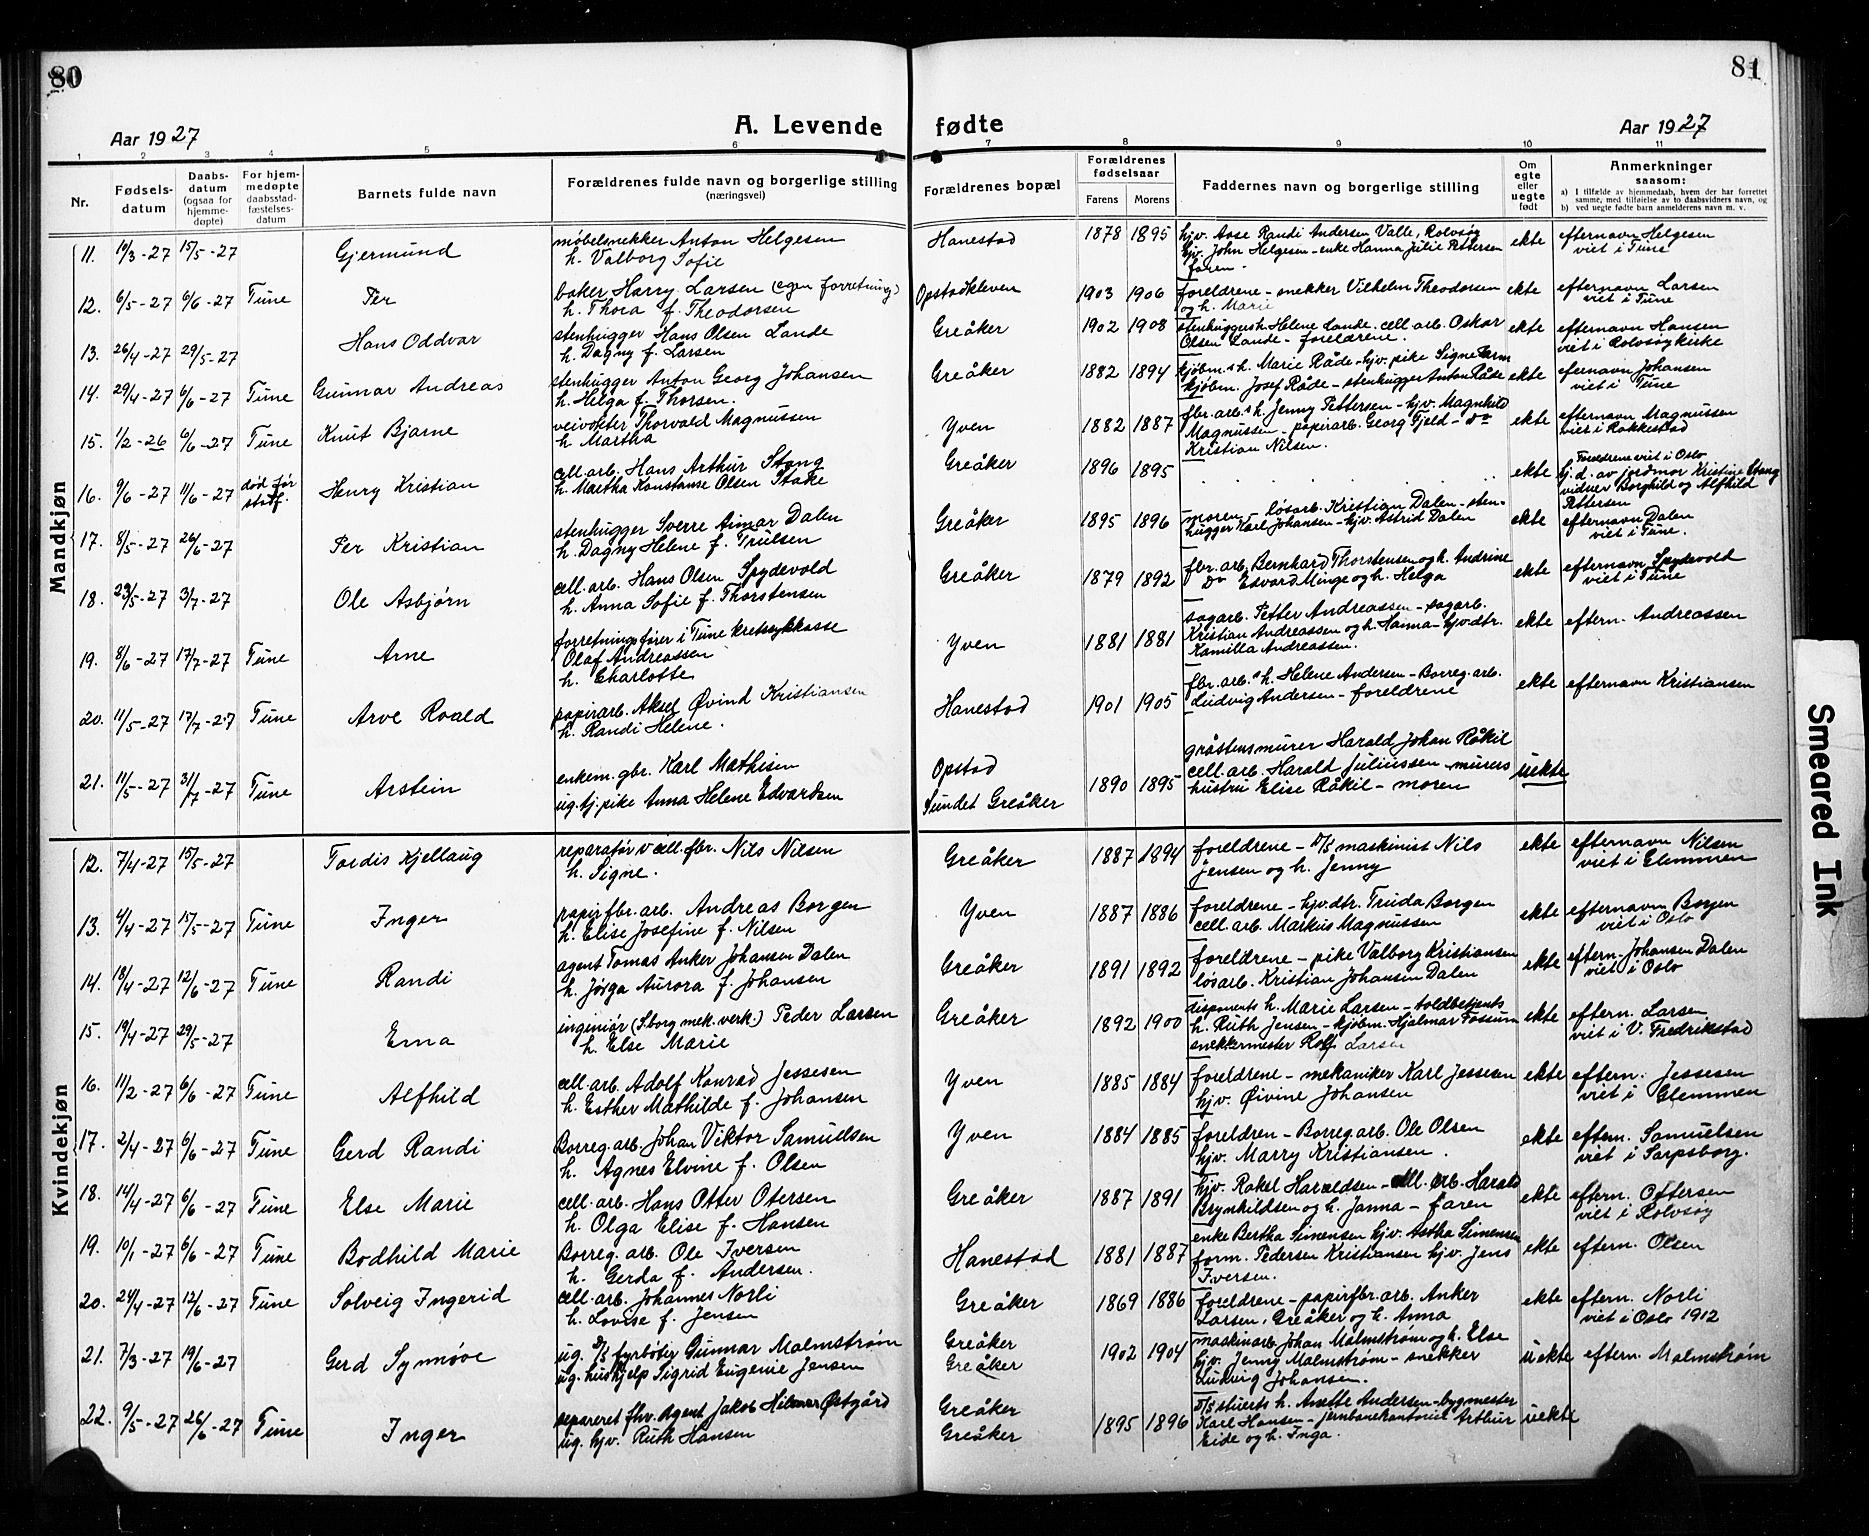 80
81
A. Levende fødte
Aar 1927
Aar 1927
1 2 3 4 5 6 7 8 9 10 11
Nr.
Fødsels-
datum
Daabs-
datum
(ogsaa for
hjemme-
døpte)
For hjem-
medøpte
daabsstad-
fæstelses-
datum
Barnets fulde navn
Forældrenes fulde navn og borgerlige stilling
(næringsvei)
Forældrenes bopæl
Forældrenes
fødselsaar
Farens Morens
Faddernes navn og borgerlige stilling
Om
egte
eller
uegte
født
Anmerkninger
saasom:
a) I tilfælde av hjemmedaab, hvem der har forrettet
samme, med tilføielse av to daabsvidners navn, og
b) ved uegte født barn anmelderens navn m. v.
Mandkjøn
11. 19/3-27 15/5-27 Gjermund
møbelsnekker Anton Helgesen
h. Valborg Sofie
Hanestad 1878 1895
hjv. Aase Randi Andersen Valle, Rolvsøy
hjv. John Helgesen - enke Hanna Julie Pettersen
faren -
ekte
efternavn Helgesen
viet i Tune
12. 6/5-27 6/6-27 Tune Per
baker Harry Larsen (egen forretning)
h. Thora f. Theodorsen
Opstadkleven 1903 1906
foreldrene - snekker Vilhelm Theodorsen
og h. Marie
ekte
efternavn Larsen
viet i Tune
13. 26/4-27 29/5-27 Hans Oddvar
stenhugger Hans Olsen Lande
h. Dagny f. Larsen
Greåker 1902 1908
stenhuggers h. Helene Lande. cell. arb. Oskar
Olsen Lande - foreldrene.
ekte
efternavn Hansen
viet i Rolvsøy kirke
14. 29/4-27 6/6-27 Tune Gunnar Andreas
stenhugger Anton Georg Johansen
h. Helga f. Thorsen.
Greåker 1882 1894
kjøbm.s h. Marie Råde - hjv. pike Signe
kjøbm. Josef Råde - stenhugger Anton Råde
ekte
efernavn Johansen
viet i Tune
15. 1/2-26 6/6-27 Tune Knut Bjarne
veivokter Thorvald Magnussen
h. Martha
Yven 1882 1887
fbr. arb.s h. Jenny Pettersen - hjv. Magnhild
Magnussen - papirarb. Georg Fjeld - do
Kristian Nilsen.
ekte
efternavn Magnussen
viet i Rakkestad
16. 9/6-27 11/6-27 død før
stadf. Henry Kristian
cell. arb. Hans Arthur Stang
h. Martha Konstanse Olsen Stake
Greåker 1896 1895
ekte
Foreldrene viet i Oslo
hj. d. av jordmor Kristine Stang
vidner Borghild og Alfhild
Pettersen
17. 8/5-27 26/6-27 Per Kristian
stenhugger Sverre Aimar Dalen
h. Dagny Helene f. Trulsen
Greåker 1895 1896
moren - løsarb. Kristian Dalen - sten-
hugger Karl Johansen - hjv. Astrid Dalen
ekte
efternavn Dalen
viet i Tune.
18. 23/5-27 3/7-27 Ole Asbjørn
cell. arb. Hans Olsen Spydevold
h. Anna Sofie f. Thorstensen
Greåker 1879 1892
fbr. arb. Bernhard Thorstensen og h. Andrine
Do Edvard Minge og h. Helga
ekte
efternavn Spydevold
viet i Tune
19. 8/6-27 17/7-27 Tune Arne
forretningsfører i Tune kretssykkasse
Olaf Andreassen
h. Charlotte
Yven 1881 1881
sagarb. Petter Andreassen - sagarb.
Kristian Andreassen og h. Hanna - hjv. dtr.
Kamilla Andreassen.
ekte
eftern. Andreassen
20. 11/5-27 17/7-27 Tune Arve Roald
papirarb. Aksel Øvind Kristiansen
h. Randi Helene.
Hanestad 1901 1905
fbr. arb.s h. Helene Andersen - Borreg. arb.
Ludvig Andersen - foreldrene
ekte
efternavn Kristiansen
21. 11/5-27 31/7-27 Tune Arstein
enkem. gbr. Karl Mathisen
ug. tj. pike Anna Helene Edvardsen
Opstad
Sundet Greåker
1890 1895
gråstensmurer Harald Johan Råkil
cell. arb. Harald Juliussen - murers
hustru Elise Råkil - moren
uekte
Kvindekjøn
12. 7/4-27 15/5-27 Tordis Kjellaug
reparatør v cell. fbr. Nils Nilsen
h. Signe.
Greåker 1887 1894
foreldrene - D/S maskinist Nils
Jensen og h. Jenny
ekte
efternavn Nilsen
viet i Glemmen
13. 4/4-27 15/5-27 Tune Inger
papirfbr. arb. Andreas Borgen
h. Elise Josefine f. Nilsen
Yven 1887 1886
foreldrene - hjv. dtr. Truida Borgen
cell. arb. Markus Magnussen
ekte
efternavn Borgen
viet i Oslo
14. 18/4-27 12/6-27 Tune Randi
agent Tomas Anker Johansen Dalen
h. Jørga Aurora f. Johansen
Greåker 1891 1892
foreldrene - pike Valborg Kristiansen
løsarb. Kristian Johansen Dalen
ekte
eftern. Johansen Dalen
viet i Oslo
15. 19/4-27 29/5-27 Erna
ingeniør (S.borg mek. verk.) Peder Larsen
h. Else Marie
Greåker 1892 1900
disponents h. Marie Larsen - toldbetjents
h. Ruth Jensen - kjøbm. Hjalmar Fossum
snekkermester Rolf Larsen
ekte
eftern. Larsen
viet i V. Fredrikstad
16. 11/2-27 6/6-27 Tune Alfhild
cell. arb. Adolf Konrad Jessesen
h. Esther Mathilde f. Johansen
Yven 1885 1884
foreldrene - mekaniker Karl Jessesen
hjv. Øivine Johansen
ekte
eftern. Jessesen
viet i Glemmen
17. 2/4-27 6/6-27 Tune Gerd Randi
Borreg. arb. Johan Viktor Samuelsen
h. Agnes Elvine f. Olsen
Yven 1884 1885
foreldren - Borreg. arb. Ole Olsen
hjv. Marry Kristiansen.
ekte
eftern. Samuelsen
viet i Sarpsborg.
18. 14/4-27 6/6-27 Tune Else Marie
cell. arb. Hans Otter Otersen
h. Olga Elise f. Hansen
Greåker 1887 1891
hjv. Rakel Haraldsen - cell. arb. Harald
Brynhildsen og h. Janna - faren
ekte
eftern. Ottersen
viet i Rolvsøy
19. 10/1-27 6/6-27 Tune Bodhild Marie
Borreg. arb. Ole Iversen
h. Gerda f. Andersen.
Hanestad 1881 1887
enke Bertha Simensen hjv. Astha Simensen
form. Pedersen Kristiansen hjv. Jens
Iversen.
ekte
eftern. Olsen
20. 24/4-27 12/6-27 Tune Solveig Ingerid
cell. arb. Johannes Norli
h. Lovise f. Jensen
Greåker 1869 1886
foreldrene - papirfbr. arb. Anker
Larsen, Greåker og h. Anna
ekte
eftern. Norli
viet i Oslo 1912
21. 7/3-27 19/6-27 Gerd Synnøve
ug. D/S fyrbøter Gunnar Malmstrøm
ug. hushjelp Sigrid Eugenie Jensen
Greåker
Greåker
1902 1904
maskinarb. Johan Malmstrøm og h. Else
hjv. Jenny Malmstrøm - snekker
Ludvig Johansen.
uekte
eftern. Malmstrøm
22. 9/5-27 26/6-27 Tune Inger
separeret fhv. Agent Jakob Hilmar Østgård
ug. hjv. Ruth Hansen
Greåker
Greåker
1895 1896
D/S stuerts h. Anette Andersen - bygmester
Karl Hansen - jernbanekontorist Arthur
Eide og h. Inga.
uekte
Smeared Ink